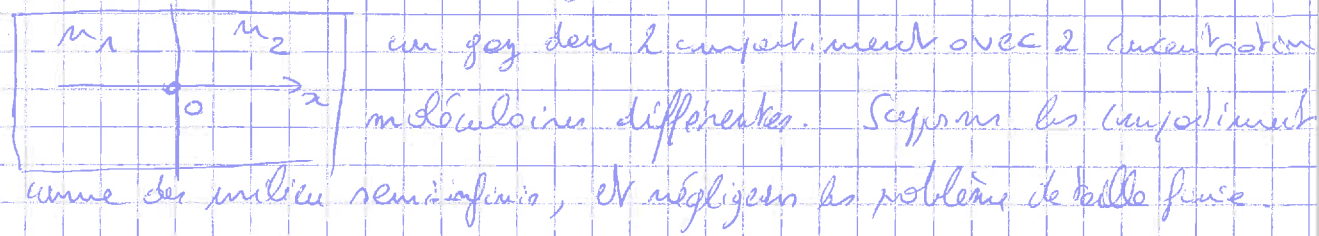 n1 n2 un gaz dans 2 compartiment avec 2 concentration
O x moléculaires différentes. Supposons les compartiment
comme des milieu semi-infinis, et négligeons les problème de taille finie.